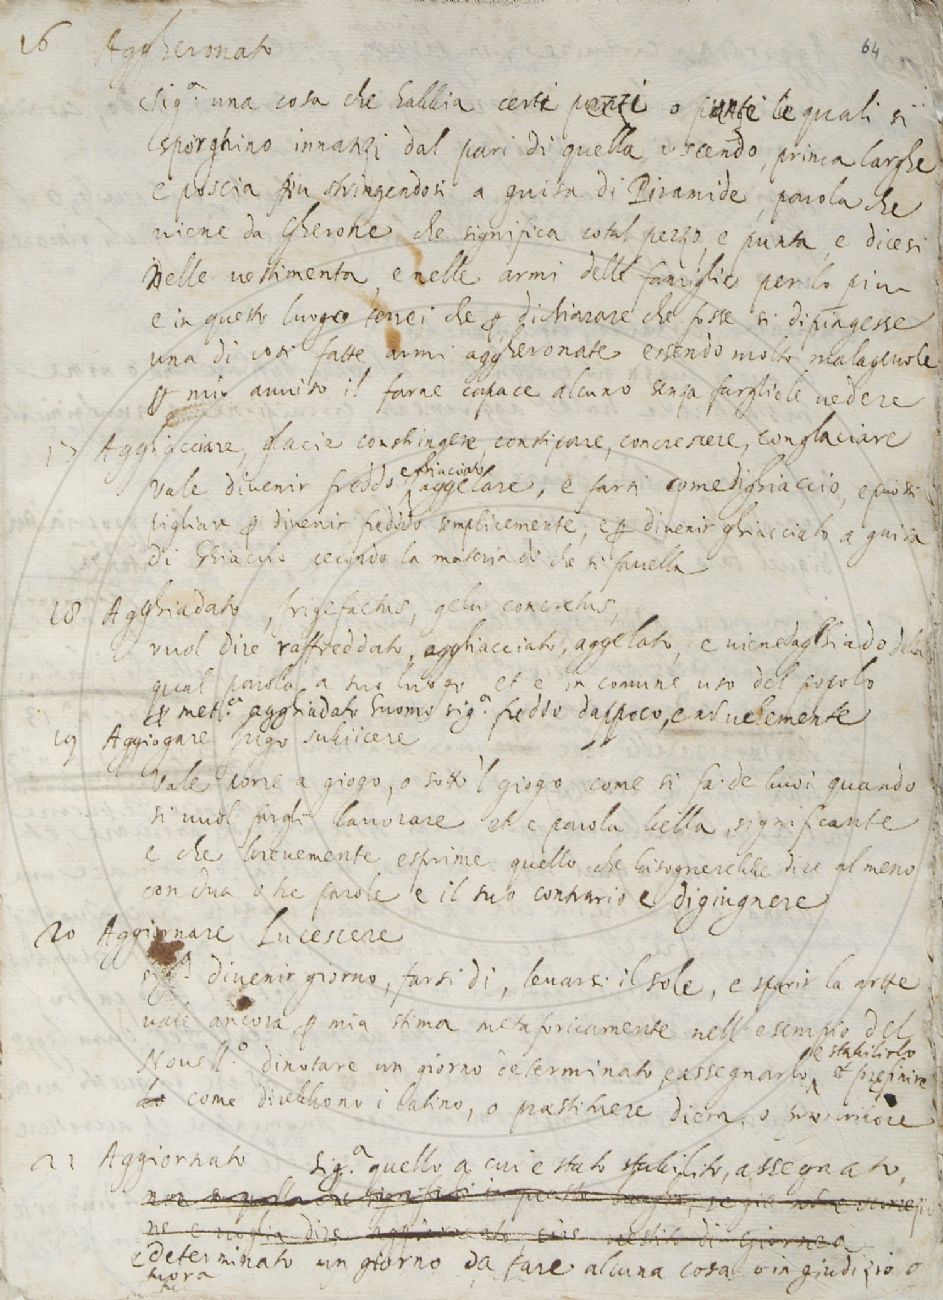 16 Aggheronato 64
Sig.ª una cosa che habbia certi pezzi o punte le quali si
sporghino innanzi dal pari di quella uscendo, prima larghe
e poscia piu stringendosi a guisa di Piramide, parola che
viene da Gherone che significa cotal pezzo, e punta, e dicesi
Nelle vestimenta, e nelle armi delle famiglie per lo piu
e in questo luogo terrei che ꝑ dichiarare che fosse si dipingesse
una di cosi fatte armi aggheronate essendo molto malagevole
ꝑ mio avviso il farne capace alcuno senza fargliele vedere
17 Agghiacciare, glacie constingere, constipare, concrescere, conglaciare
vale divenir freddo e ghiacciato aggelare, e farsi come di ghiaccio, e puossi
pigliare ꝑ divenir freddo semplicemente, e ꝑ divenir ghiacciato a guisa
di Ghiaccio secondo la materia di che si favella
18 Agghiadato, frigefactus, gelu concretus,
vuol dire raffreddato, agghiacciato, aggelato, e viene da ghiado della
qual parola a suo luogo et è in comune uso del popolo
ꝑ met.ª agghiadato huomo sig.ª freddo dappoco, e
19 Aggiogare jugo subiicere
vale porre a giogo, o sotto 'l giogo come si fa de buoi quando
si vuol fargli lavorare et e parola bella, significante
e che brevemente esprime quello che bisognerebbe dire al meno
con dua o tre parole e il suo contrario è digiugnere
20 Aggiornare Lucescere
sig.ª divenir giorno, farsi dì, levarsi il sole, e sparir la notte
vale ancora ꝑ mia stima metaforicamente nell esempio del
Novell.º dinotare un giorno determinato, e assegnarlo, e stabilirlo et prefinire
come direbbono i latino, o praestituere diem, o
21 Aggiornato Sig.ª quello a cui e stato stabilito, assegnato,
e determinato un giorno da fare alcuna cosa o in giudizio o
fuora